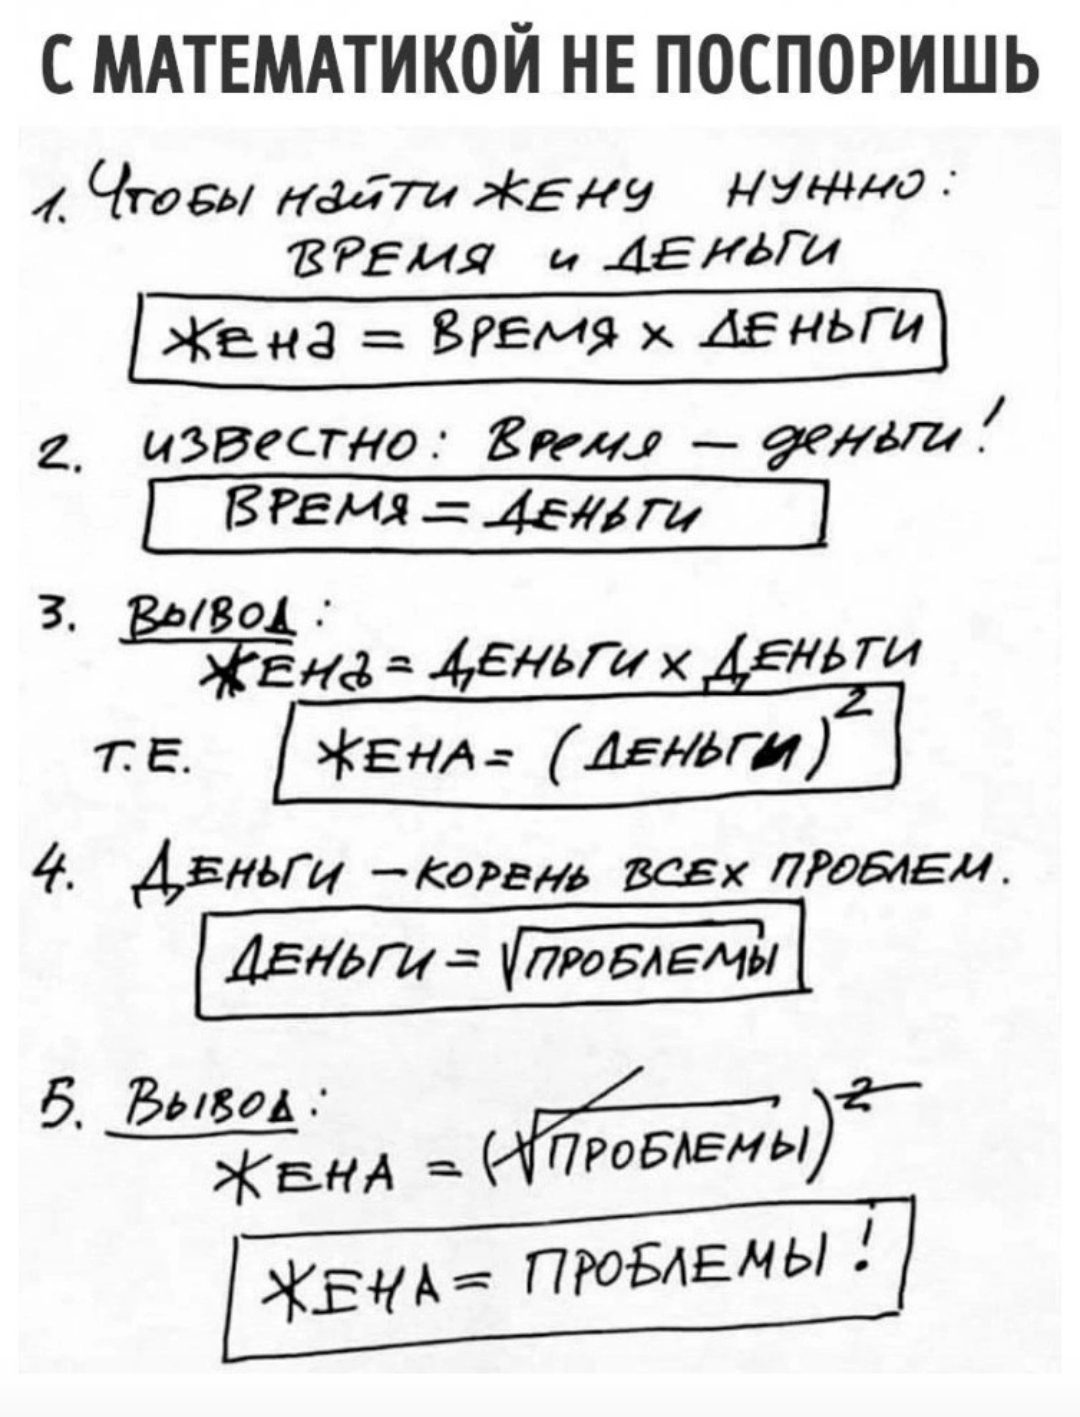 С МАТЕМАТИКОЙ НЕ ПОСПОРИШЬ
1. Чтобы найти жену нужно:
время и деньги
Жена = время х деньги
2. известно: Время – деньги!
Время = деньги
3. Вывод:
Жена = деньги х деньги
т.е. Жена = (деньги)²
4. Деньги – корень всех проблем.
Деньги = √проблемы
5. Вывод:
Жена = (√проблемы)²
Жена = проблемы!